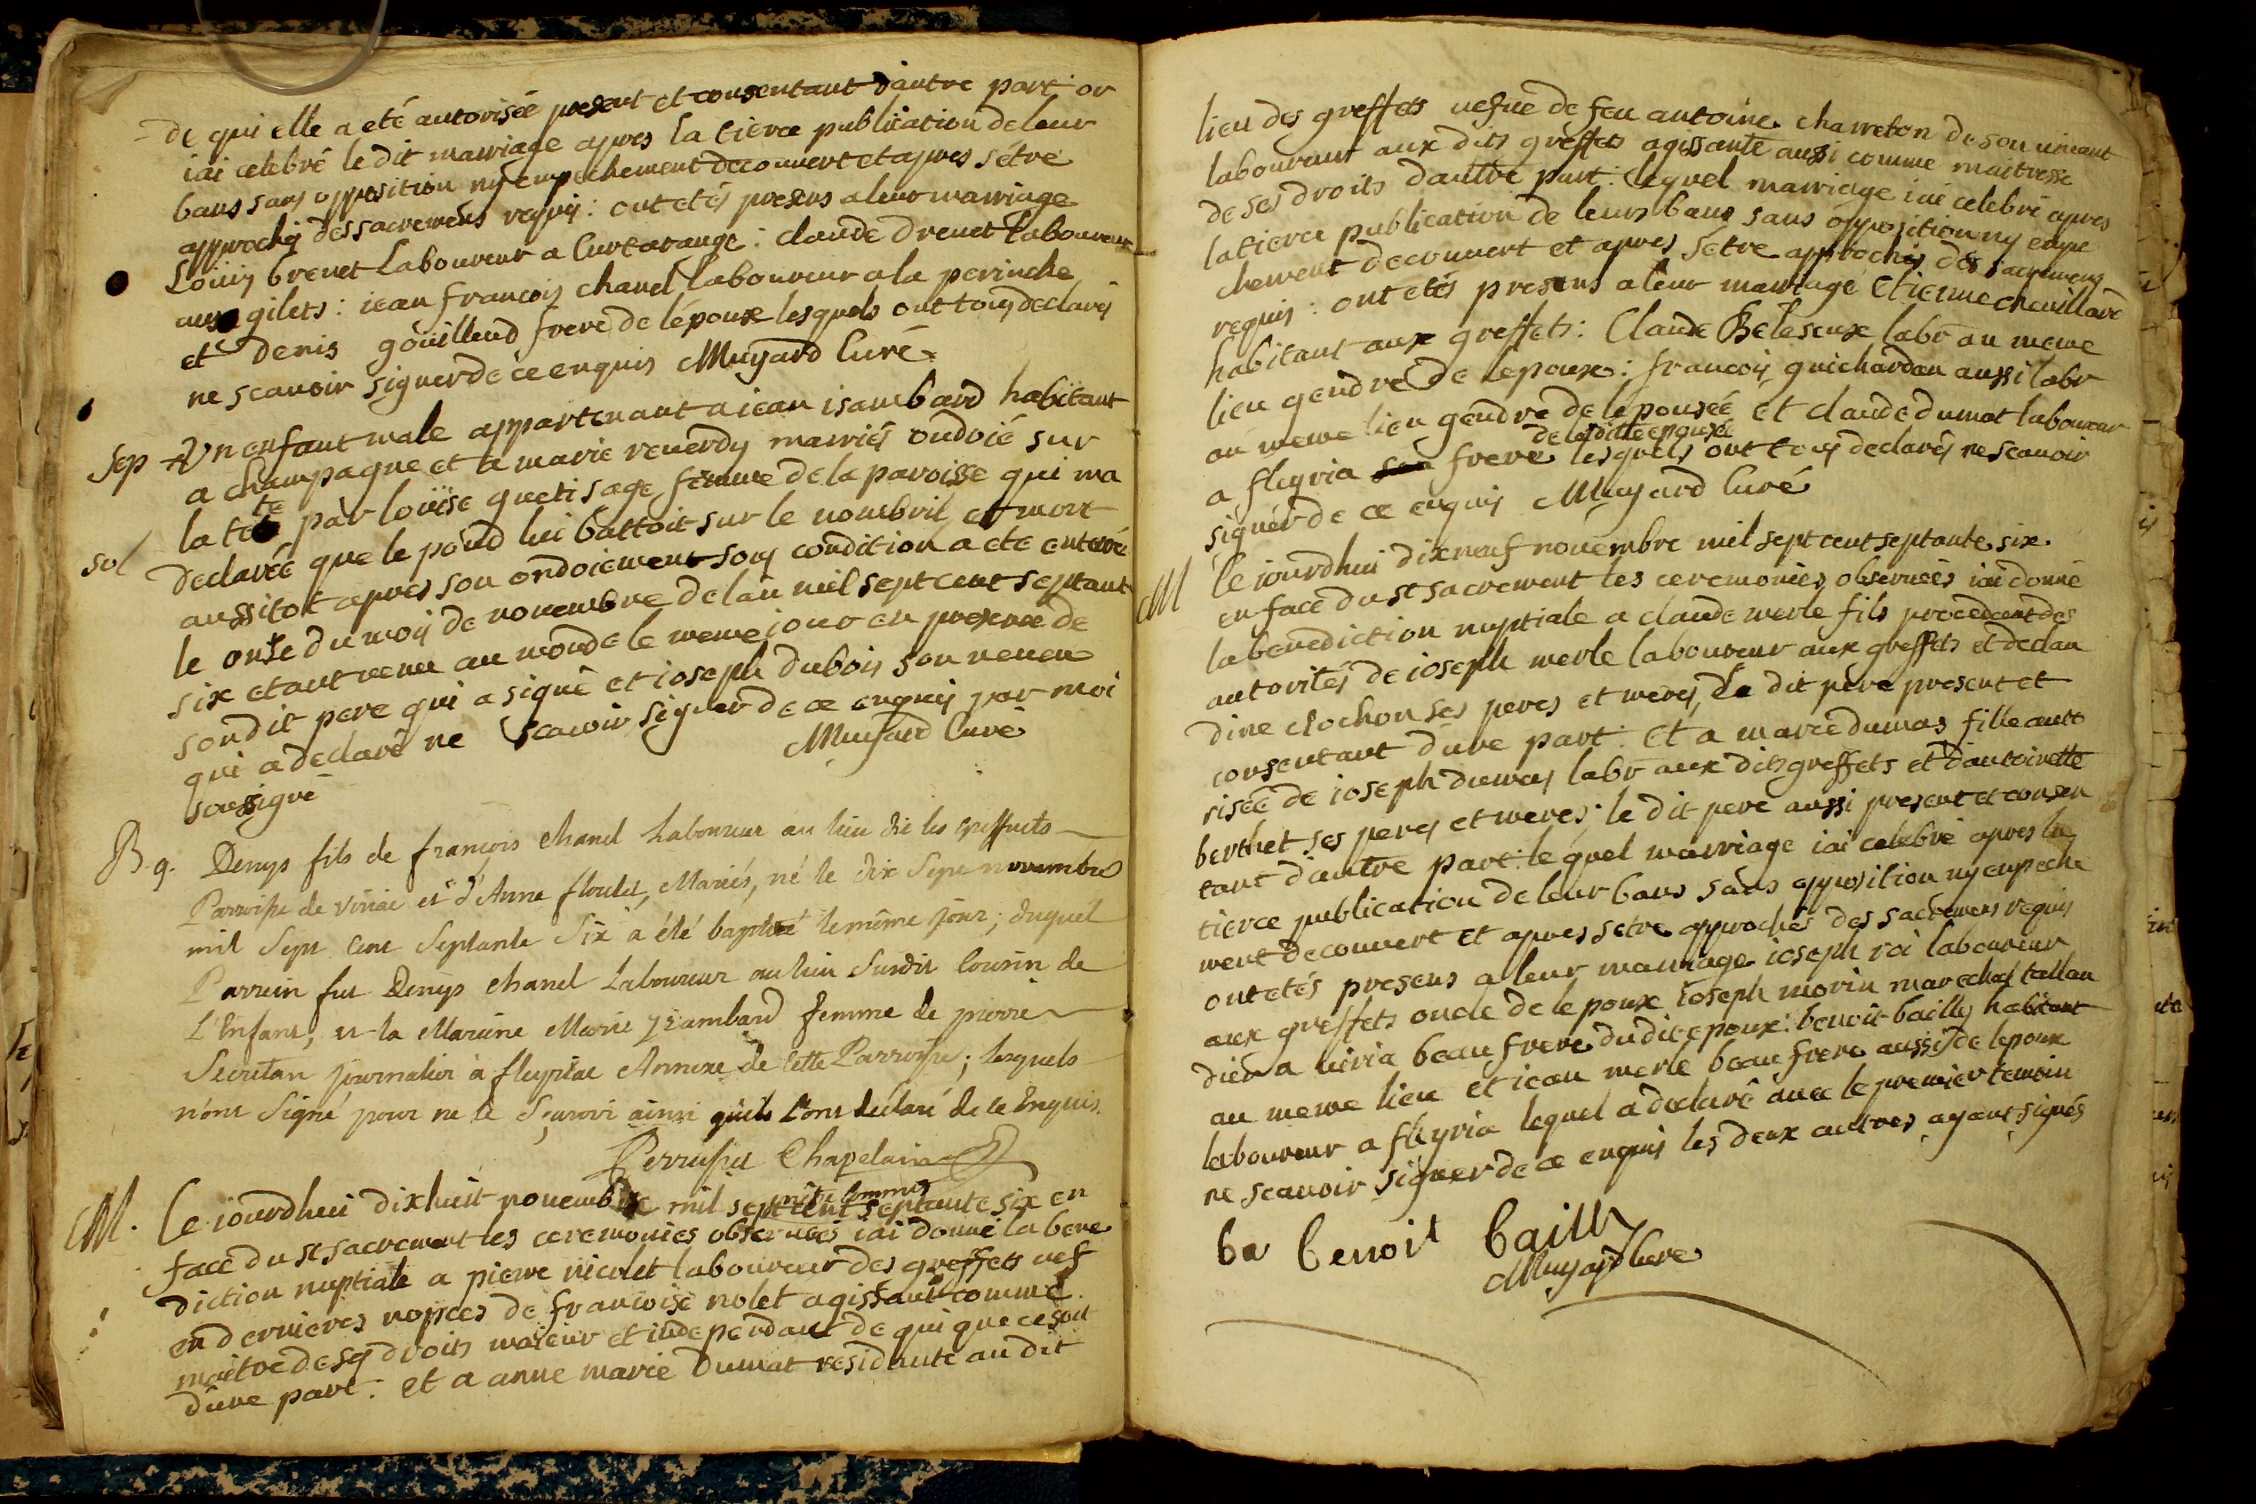 de qui elle a eté autorisée present et consentant dautre part or
iai celebré le dit marriage apres la tierce publication de leur
bans sans opposition ny empechement decouvert et apres sétre
approchés des sacremens requis : ont etés presens a leur marriage
Loüis brenet Laboureur a Curtarange : claude drevet laboureur
aux gilets : iean francois chanel laboureur a la perinche
et denis goüilloud frere de lépoux lesquels ont tous declarés
ne scavoir signer de ce enquis Muyard Curé
sep Un enfant male appartenant a iean isambard habitant
a champagne et a marie reverdy marriés ondoié sur
la tete par loüise gueti sage femme de la paroisse qui ma
sol declaree que le poud lui battoit sur le nombril et mort
aussitot apres son ondoiement sous condition a eté enterré
le onse du mois de novembre de lan mil sept cent septante
six etant venu au monde le meme iour en presence de
son dit pere qui a signé et ioseph dubois son neveu
qui a declaré ne scavoir signer de ce enquis par moi
soussigné Muyard Curé
B. g. Denys fils de françois chanel Laboureur au lieu dit les greffuets
Parroisse de viriac et d'Anne floulet, Mariés, né le dix Sept novembre
mil Sept Cent Septante Six a été baptisé le même jour ; duquel
Parrein fut Denys chanel Laboureur au lieu Susdit Cousin de
L'Enfant, et la Mareine Marie yzambard femme de pierre
Secretan journalier à fleyriac Annexe de Cette Parroisse ; lesquels
n'ont Signé pour ne le Sçavoir ainsi qu'ils L'ont déclaré de ce Enquis.
Chapelain
M. Ce iourdhui dixhuit novembre mil sept cent septante six en
face du st sacrement les ceremonies observées iai donné la bene
diction nuptiale a pierre nicolet laboureur des greffets vef
en dernieres nopces de francoise nolet agissant comme
maitre de ses droits maieur et independant de qui que ce soit
dúne part : et a anne marie dumat residante au dit
lieu des greffets vefue de feu antoine charreton de son vivant
laboureur aux dits greffets agissante aussi comme maitresse
de ses droits dautre part : lequel marriage iai celebré apres
la tierce publication de leurs bans sans opposition ny empe
chement decouvert et apres sétre approchés des sacremens
requis : ont etés presens a leur marriage Etienne chevillard
habitant aux greffets : Claude Beleseux labr au meme
lieu gendre de lepoux : francois guichardon aussi labr
au meme lieu gendre de lépousée et claude dumat laboureur
de laditte epousée
a fleyria frere lesquels ont tous declarés ne scavoir
signer de ce enquis Muyard Curé
M Ce iourdhui dixneuf novembre mil sept cent septante six
en face du st sacrement les ceremonies observées iai donné
la benediction nuptiale a claude merle fils procedent des
autorités de ioseph merle laboureur aux greffets et declau
dine clochon ses peres et meres, le dit père present et
consentant dúne part : Et a marie dumas fille auto
risée de ioseph dumas labr aux dits greffets et dantoinette
berthet ses peres et meres : le dit pere aussi present et consen
tant dautre part : lequel marriage iai celebré apres la
tierce publication de leur bans sans opposition ny enpeche
ment decouvert et apres setre approchés des sacremens requis
ont etés presens a leur marriage ioseph roi laboureur
aux greffets oncle de lepoux ioseph morin marechal tallan
dier a viria beau frere du dit epoux : benoit bailly habitant
au meme lieu et iean merle beau frere aussi de lepoux
laboureur a fleyria lequel a declaré avec le premier temoin
ne scavoir signer de ce enquis les deux autres ayant signés
ba benoit bailly
Muyard Cure